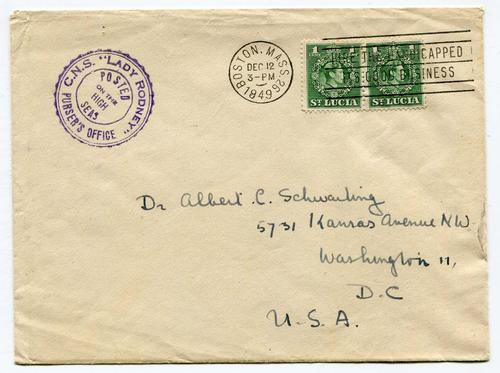 C.N.S. "LADY RODNEY"
POSTED
ON THE
HIGH
SEAS
PURSER'S OFFICE
BOSTON, MASS.
DEC 12
3-PM
1949
1 1
HIRE THE HANDICAPPED
IT'S GOOD BUSINESS
ST LUCIA ST LUCIA
Dr Albert C. Schwarting
5731 Kansas Avenue NW.
Washington 11,
D.C
U.S.A.